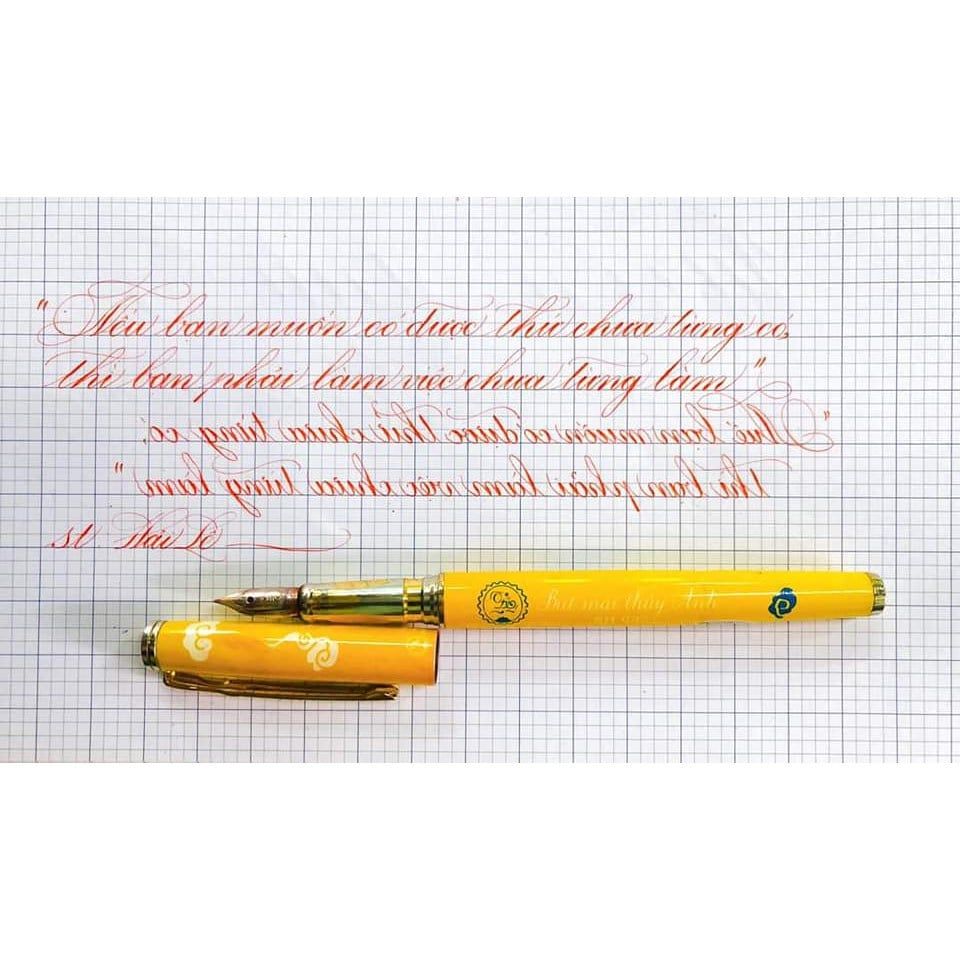 "Nếu bạn muốn có được thứ chưa từng có,
thì bạn phải làm việc chưa từng làm"
"Nếu bạn muốn có được thứ chưa từng có,
thì bạn phải làm việc chưa từng làm"
st Hải Lê
Bút mài thầy Ánh